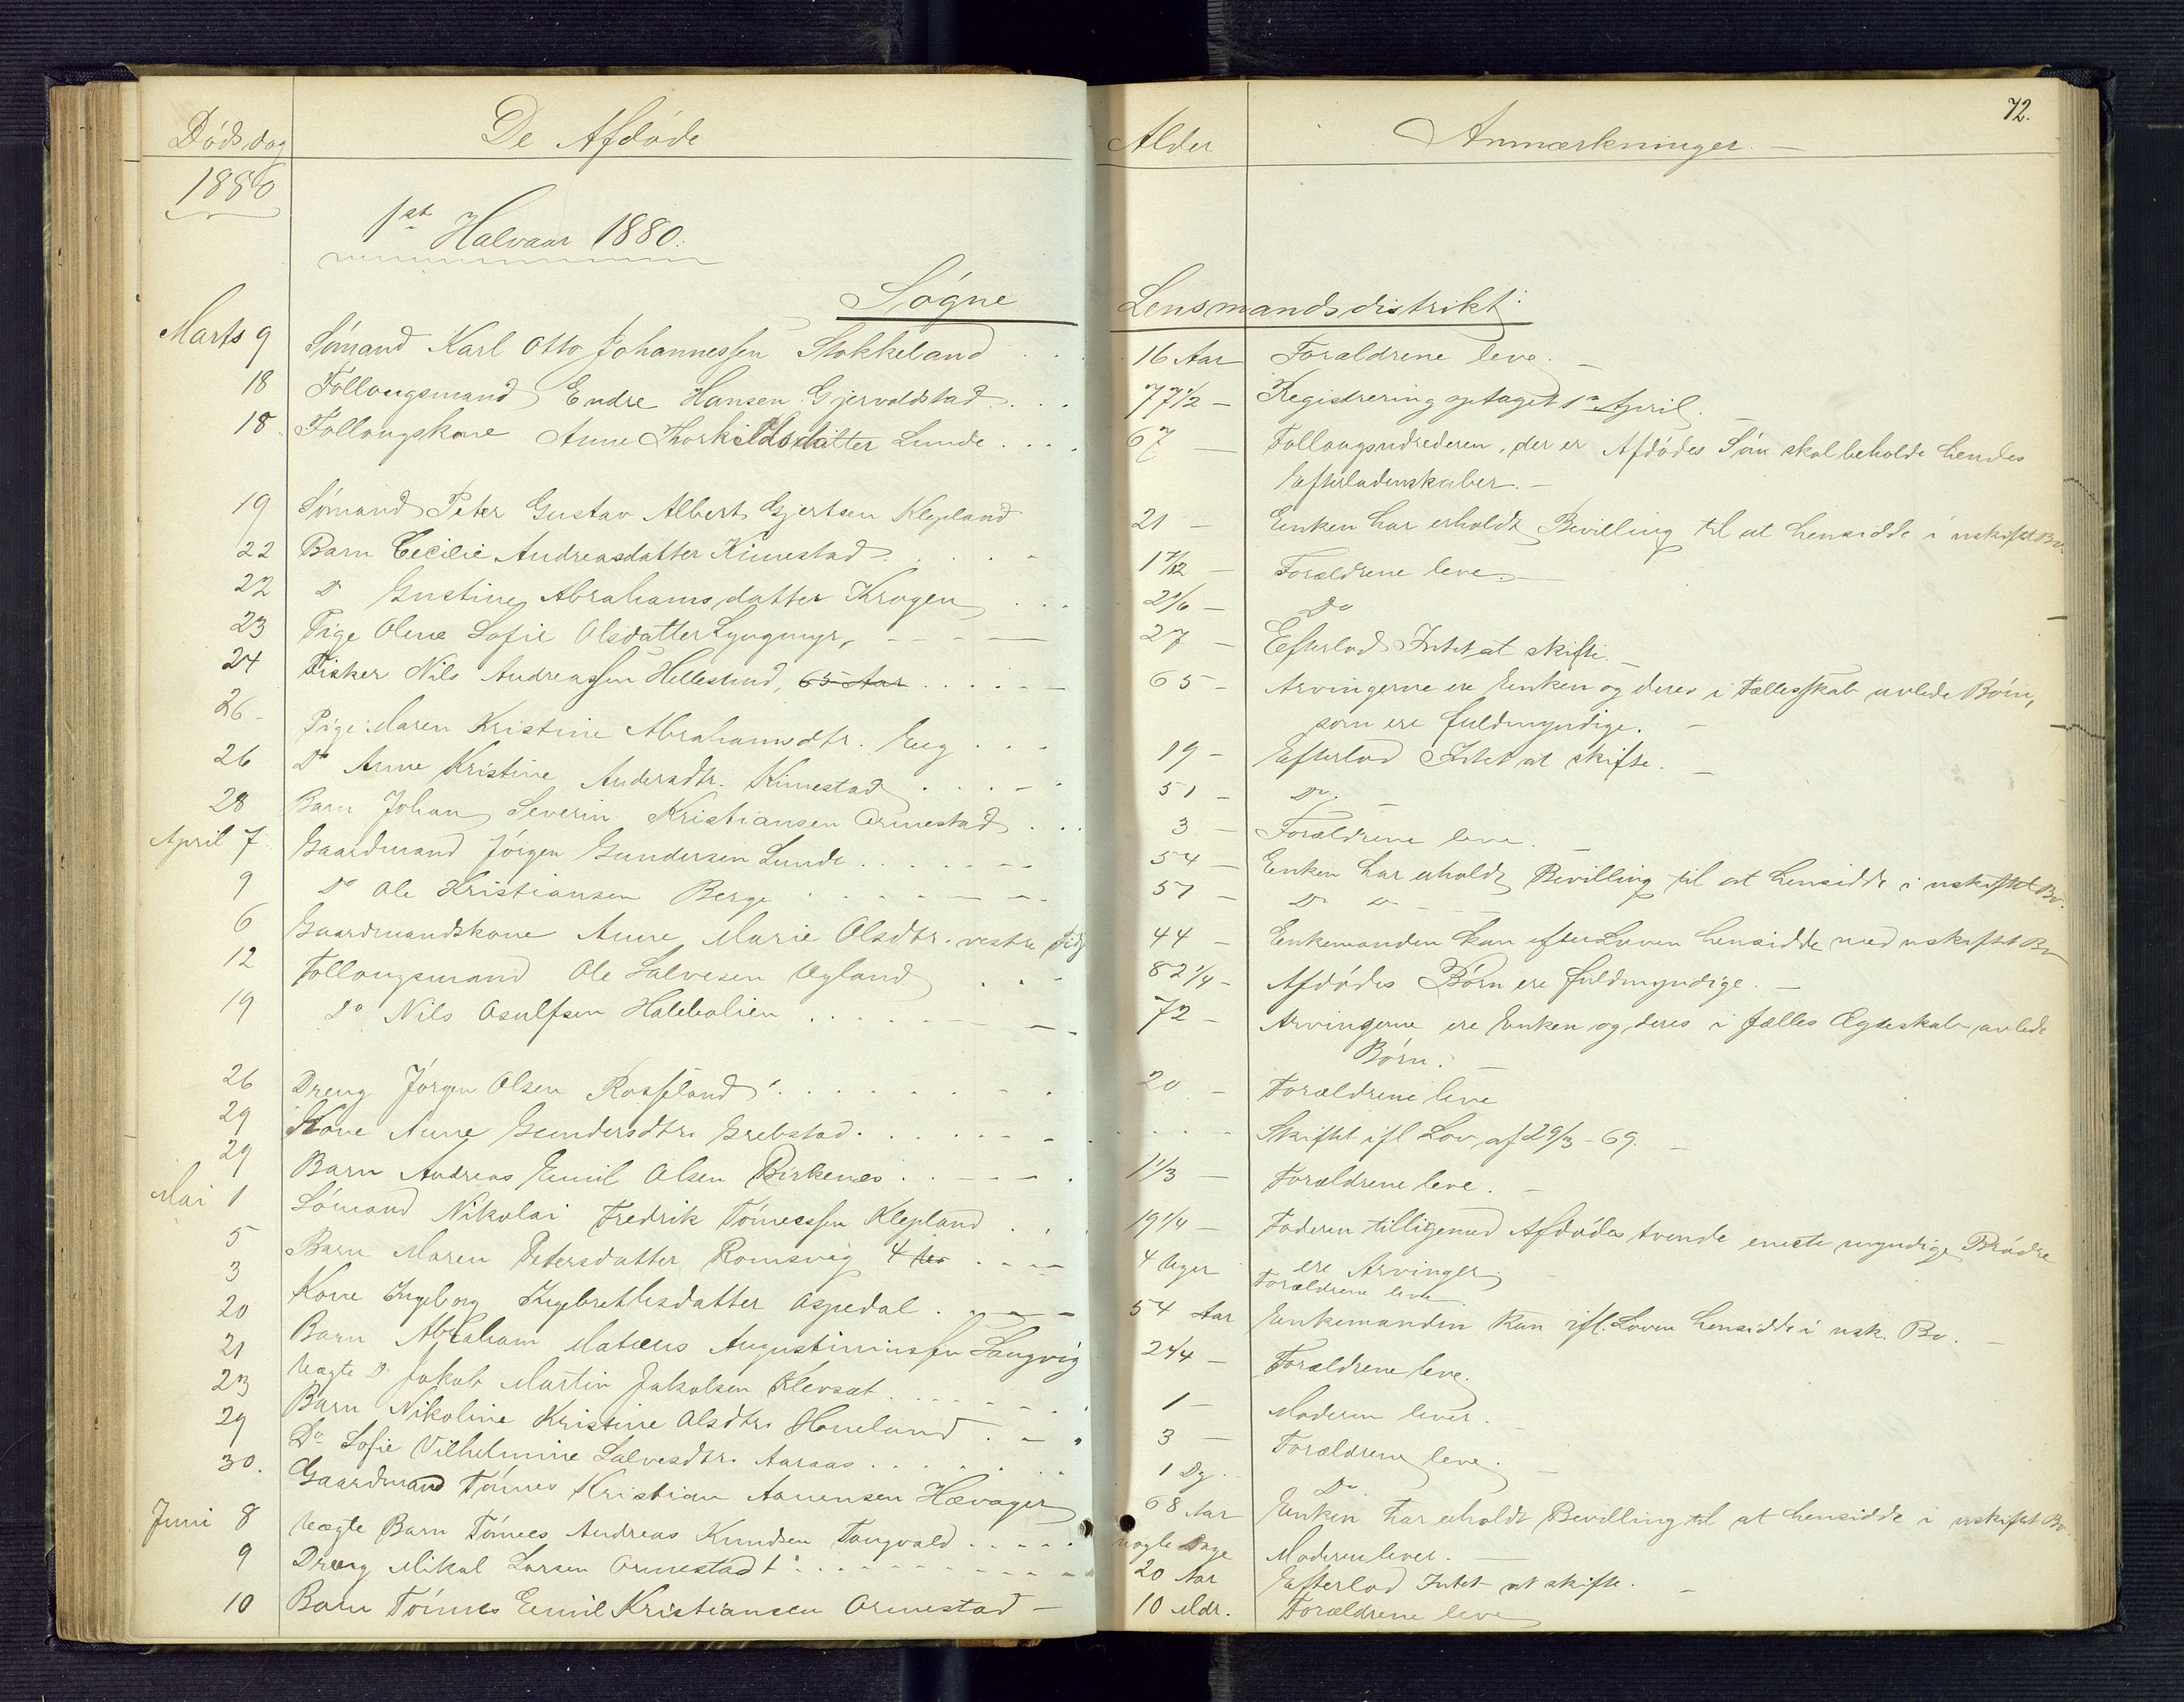 72.
Dødsdag De Afdøde Alder Anmærkninger. —
1880
1ste Halvaar 1880.
Søgne Lensmandsdistrikt:
Marts 9 Sømand Karl Otto Johannessen Stokkeland . . 16 Aar Forældrene leve. —
18 Follougsmand Endre Hansen Gjervoldstad . . . 77 1/2 — Registrering optaget 1ste April. —
18. Follougskone Anne Thorkildsdatter Lunde . . . 67 — Follougsudrederen, der er Afdødes Søn skal beholde hendes
Efterladenskaber. —
19 Sømand Peter Gustav Albert Gjertsen Klepland 21 — Enken har erholdt Bevilling til at hensidde i uskiftet Bo.
22 Barn Cecilie Andreasdatter Kimestad . . . 1 7/12 — Forældrene leve. —
22 Do Gustine Abrahamsdatter Krogen . . . 2 1/6 — Do
23 Pige Olene Sofie Olsdatter Lyngmyr, - - - — 27 — Efterlod Intet at skifte. —
24 Fisker Nils Andreassen Hellesund, 65 Aar . . . . 65 — Arvingerne ere Enken og deres i Fællesskab avlede Børn,
som ere fuldmyndige. —
26 - Pige: Maren Kristine Abrahamsdtr. Eeg . . . 19 — Efterlod Intet at skifte. —
26 Do Anne Kristine Andersdtr. Kimestad . . . . 51 — Do. —
28 Barn Johan Severin Kristiansen Ormestad . . . 3 — Forældrene leve. —
April 7 Gaardmand Jörgen Gundersen Lunde . . . . . . 54 — Enken har erholdt Bevilling til at hensidde i uskiftet Bo.
9 Do Ole Kristiansen Berge . . . . . 51 — Do Do - - -
6 Gaardmandskone Anne Marie Olsdtr. vestre 44 — Enkemanden kan efter Loven hensidde med uskiftet Bo
12 Follougsmand Ole Salvesen Ugland . . . 82 1/4 - Afdødes Børn ere fuldmyndige. —
19 Do Nils Osulfsen 72 - Arvingerne ere Enken og deres i fælles Ægteskab avlede
Børn. —
26 Dreng Jörgen Olsen Rosseland . . . . . . . 20 - Forældrene leve
29 Kone Anne Gundersdtr. Grebstad. . . . . . . . Skiftet ifl Lov af 29/3 - 69. —
29 Barn Andreas Emil Olsen Birkenes . . . . 1 1/3 — Forældrene leve. —
Mai 1 Sömand Nikolai Fredrik Tönnessen Klepland . . 19 1/4 — Faderen tilligemed Afdødes tvende eneste myndige Brødre
ere Arvinger —
5 Barn Maren Petersdatter Romsvig 4 . . . . 4 Uger Forældrene leve
3 Kone Ingeborg Ingebrethsdatter Aspedal . - - - 54 Aar Enkemanden kan ifl. Loven hensidde i usk. Bo. —
20 Barn Abraham Matæus Augustiniussen Langvig 2 1/4 — Forældrene leve.
21 Uægte Do Jakob Martin Jakobsen Klevsæt . . . . 1 — Moderen lever.
23 Barn Nikoline Kristine Olsdtr. Houeland . — . 3 — Forældrene leve. —
29 Do Sofie Vilhelmine Salvesdtr. Aaraas . . . . . . 1 Dg. Do
30. Gaardmand Tönnes Kristian Aanensen Hævager 68 Aar Enken har erholdt Bevilling til at hensidde i uskiftet Bo.
Juni 8 Uægte Barn Tönnes Andreas Knudsen Tangvald . . . . . nogle Dage Moderen lever. —
9 Dreng Mikal Larsen Ormestad . . . . . . 20 Aar Efterlod Intet at skifte. —
10 Barn Tönnes Emil Kristiansen Ormestad — 10 Mdr. Forældrene leve